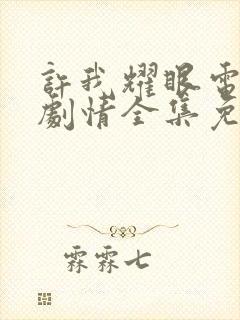 許我耀眼電
劇情全集免
霖霖七